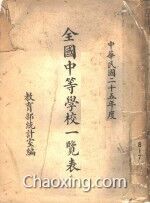 中華民國二十五年度
全國中等學校一覽表
教育部統計室編
Chaoxing.com